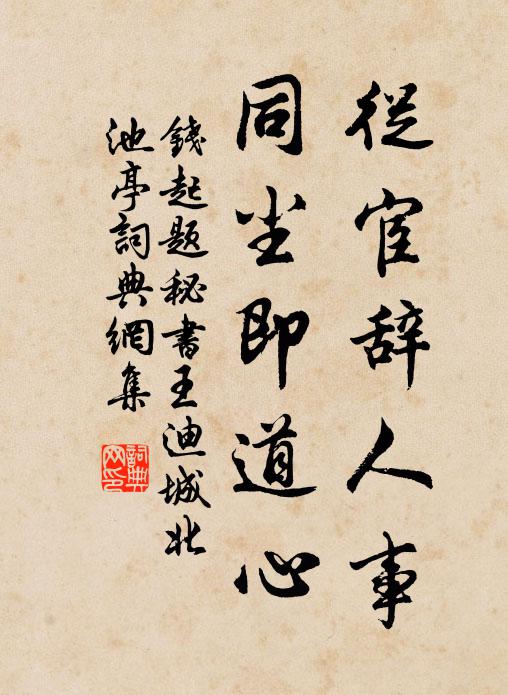 從宦辞人事
同尘即道心
錢起題秘書王迪城北
池亭詞典網集
詞典网印